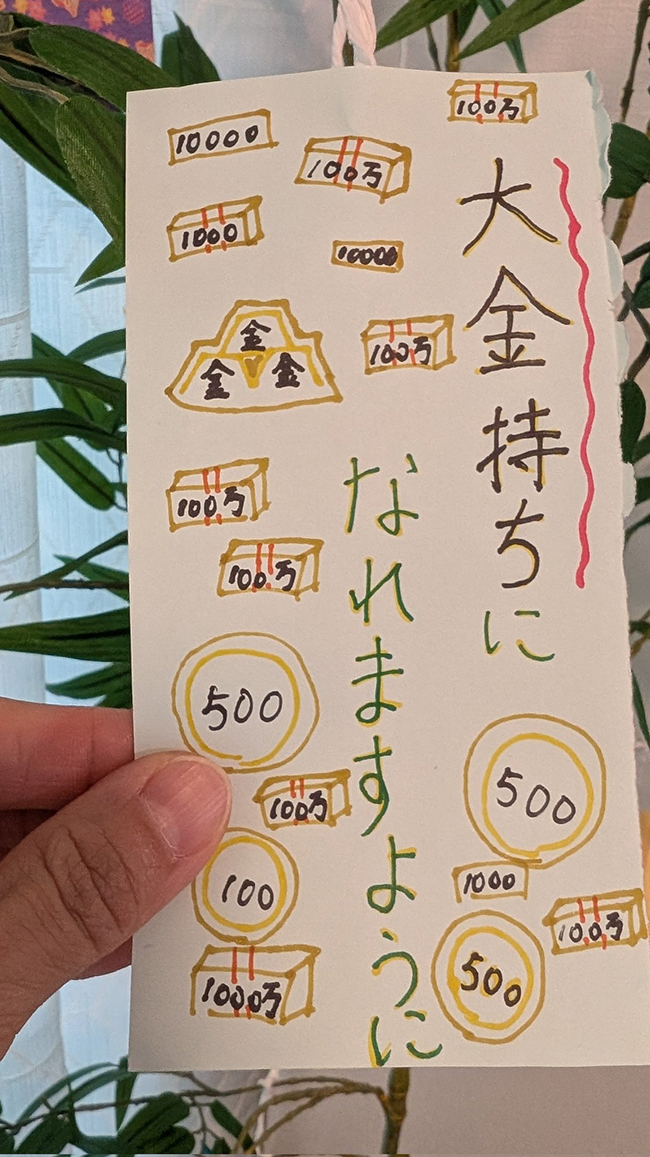 大金持ちに
なれますように
100万
10000
100万
1000
10000
金
金 金
100万
100万
100万
500
100万
100
1000万
500
1000
100万
500